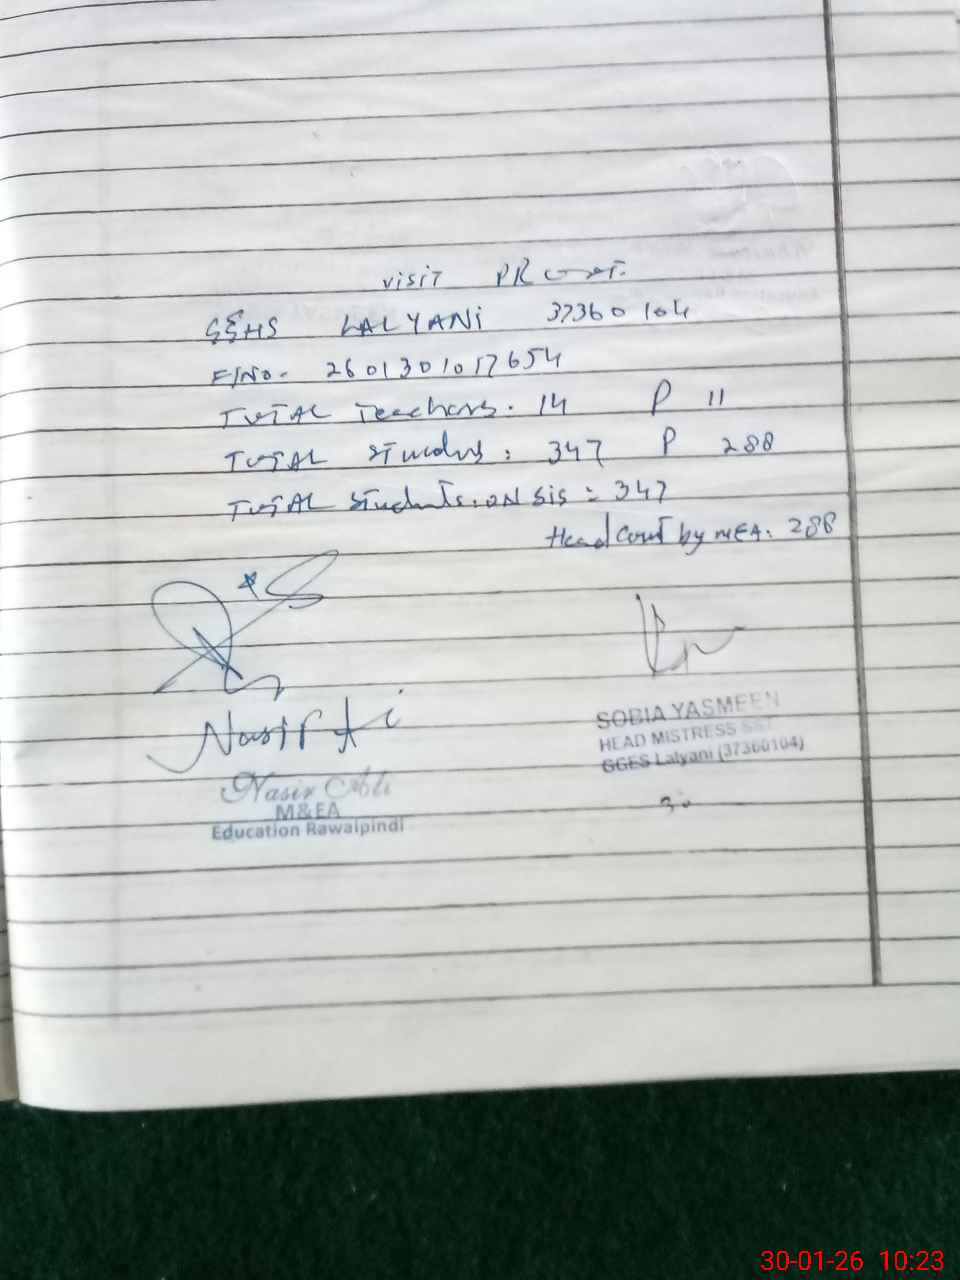 visit PRoof.
GGHS LALYANi 37360104
F/No. 2601301017654
TOTAL Teachers. 14 P 11
TOTAL Students: 347 P 288
TOTAL Students on SIS = 347
Head Count by MEA: 288
Nasir Ali
SOBIA YASMEEN
HEAD MISTRESS SST
GGES Lalyani (37360104)
Nasir Ali
M&EA
Education Rawalpindi
30-01-26 10:23